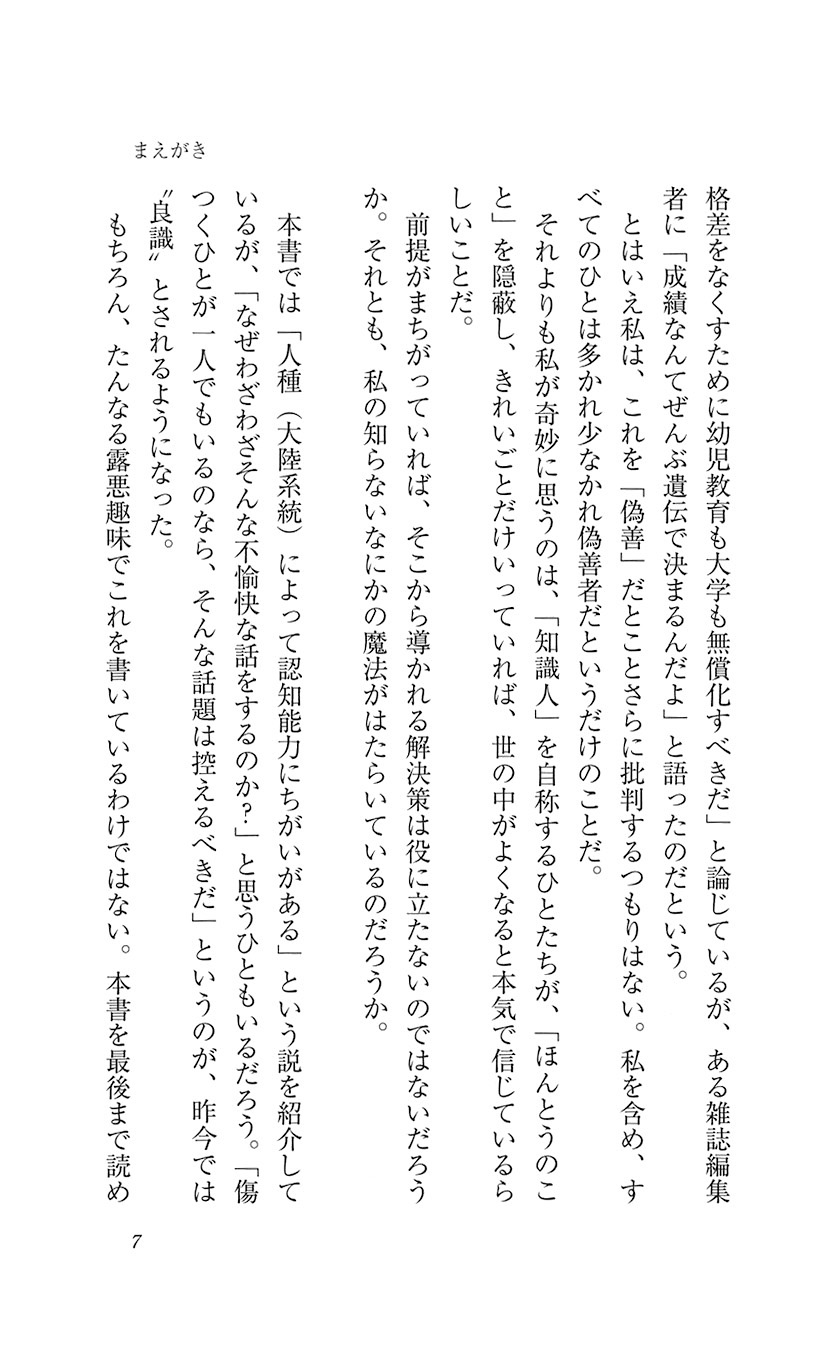 まえがき
格差をなくすために幼児教育も大学も無償化すべきだ」と論じているが、ある雑誌編集
者に「成績なんてぜんぶ遺伝で決まるんだよ」と語ったのだという。
とはいえ私は、これを「偽善」だとことさらに批判するつもりはない。私を含め、す
べてのひとは多かれ少なかれ偽善者だというだけのことだ。
それよりも私が奇妙に思うのは、「知識人」を自称するひとたちが、「ほんとうのこ
と」を隠蔽し、きれいごとだけいっていれば、世の中がよくなると本気で信じているら
しいことだ。
前提がまちがっていれば、そこから導かれる解決策は役に立たないのではないだろう
か。それとも、私の知らないなにかの魔法がはたらいているのだろうか。
本書では「人種（大陸系統）によって認知能力にちがいがある」という説を紹介して
いるが、「なぜわざわざそんな不愉快な話をするのか？」と思うひともいるだろう。「傷
つくひとが一人でもいるのなら、そんな話題は控えるべきだ」というのが、昨今では
〝良識〟とされるようになった。
もちろん、たんなる露悪趣味でこれを書いているわけではない。本書を最後まで読め
7